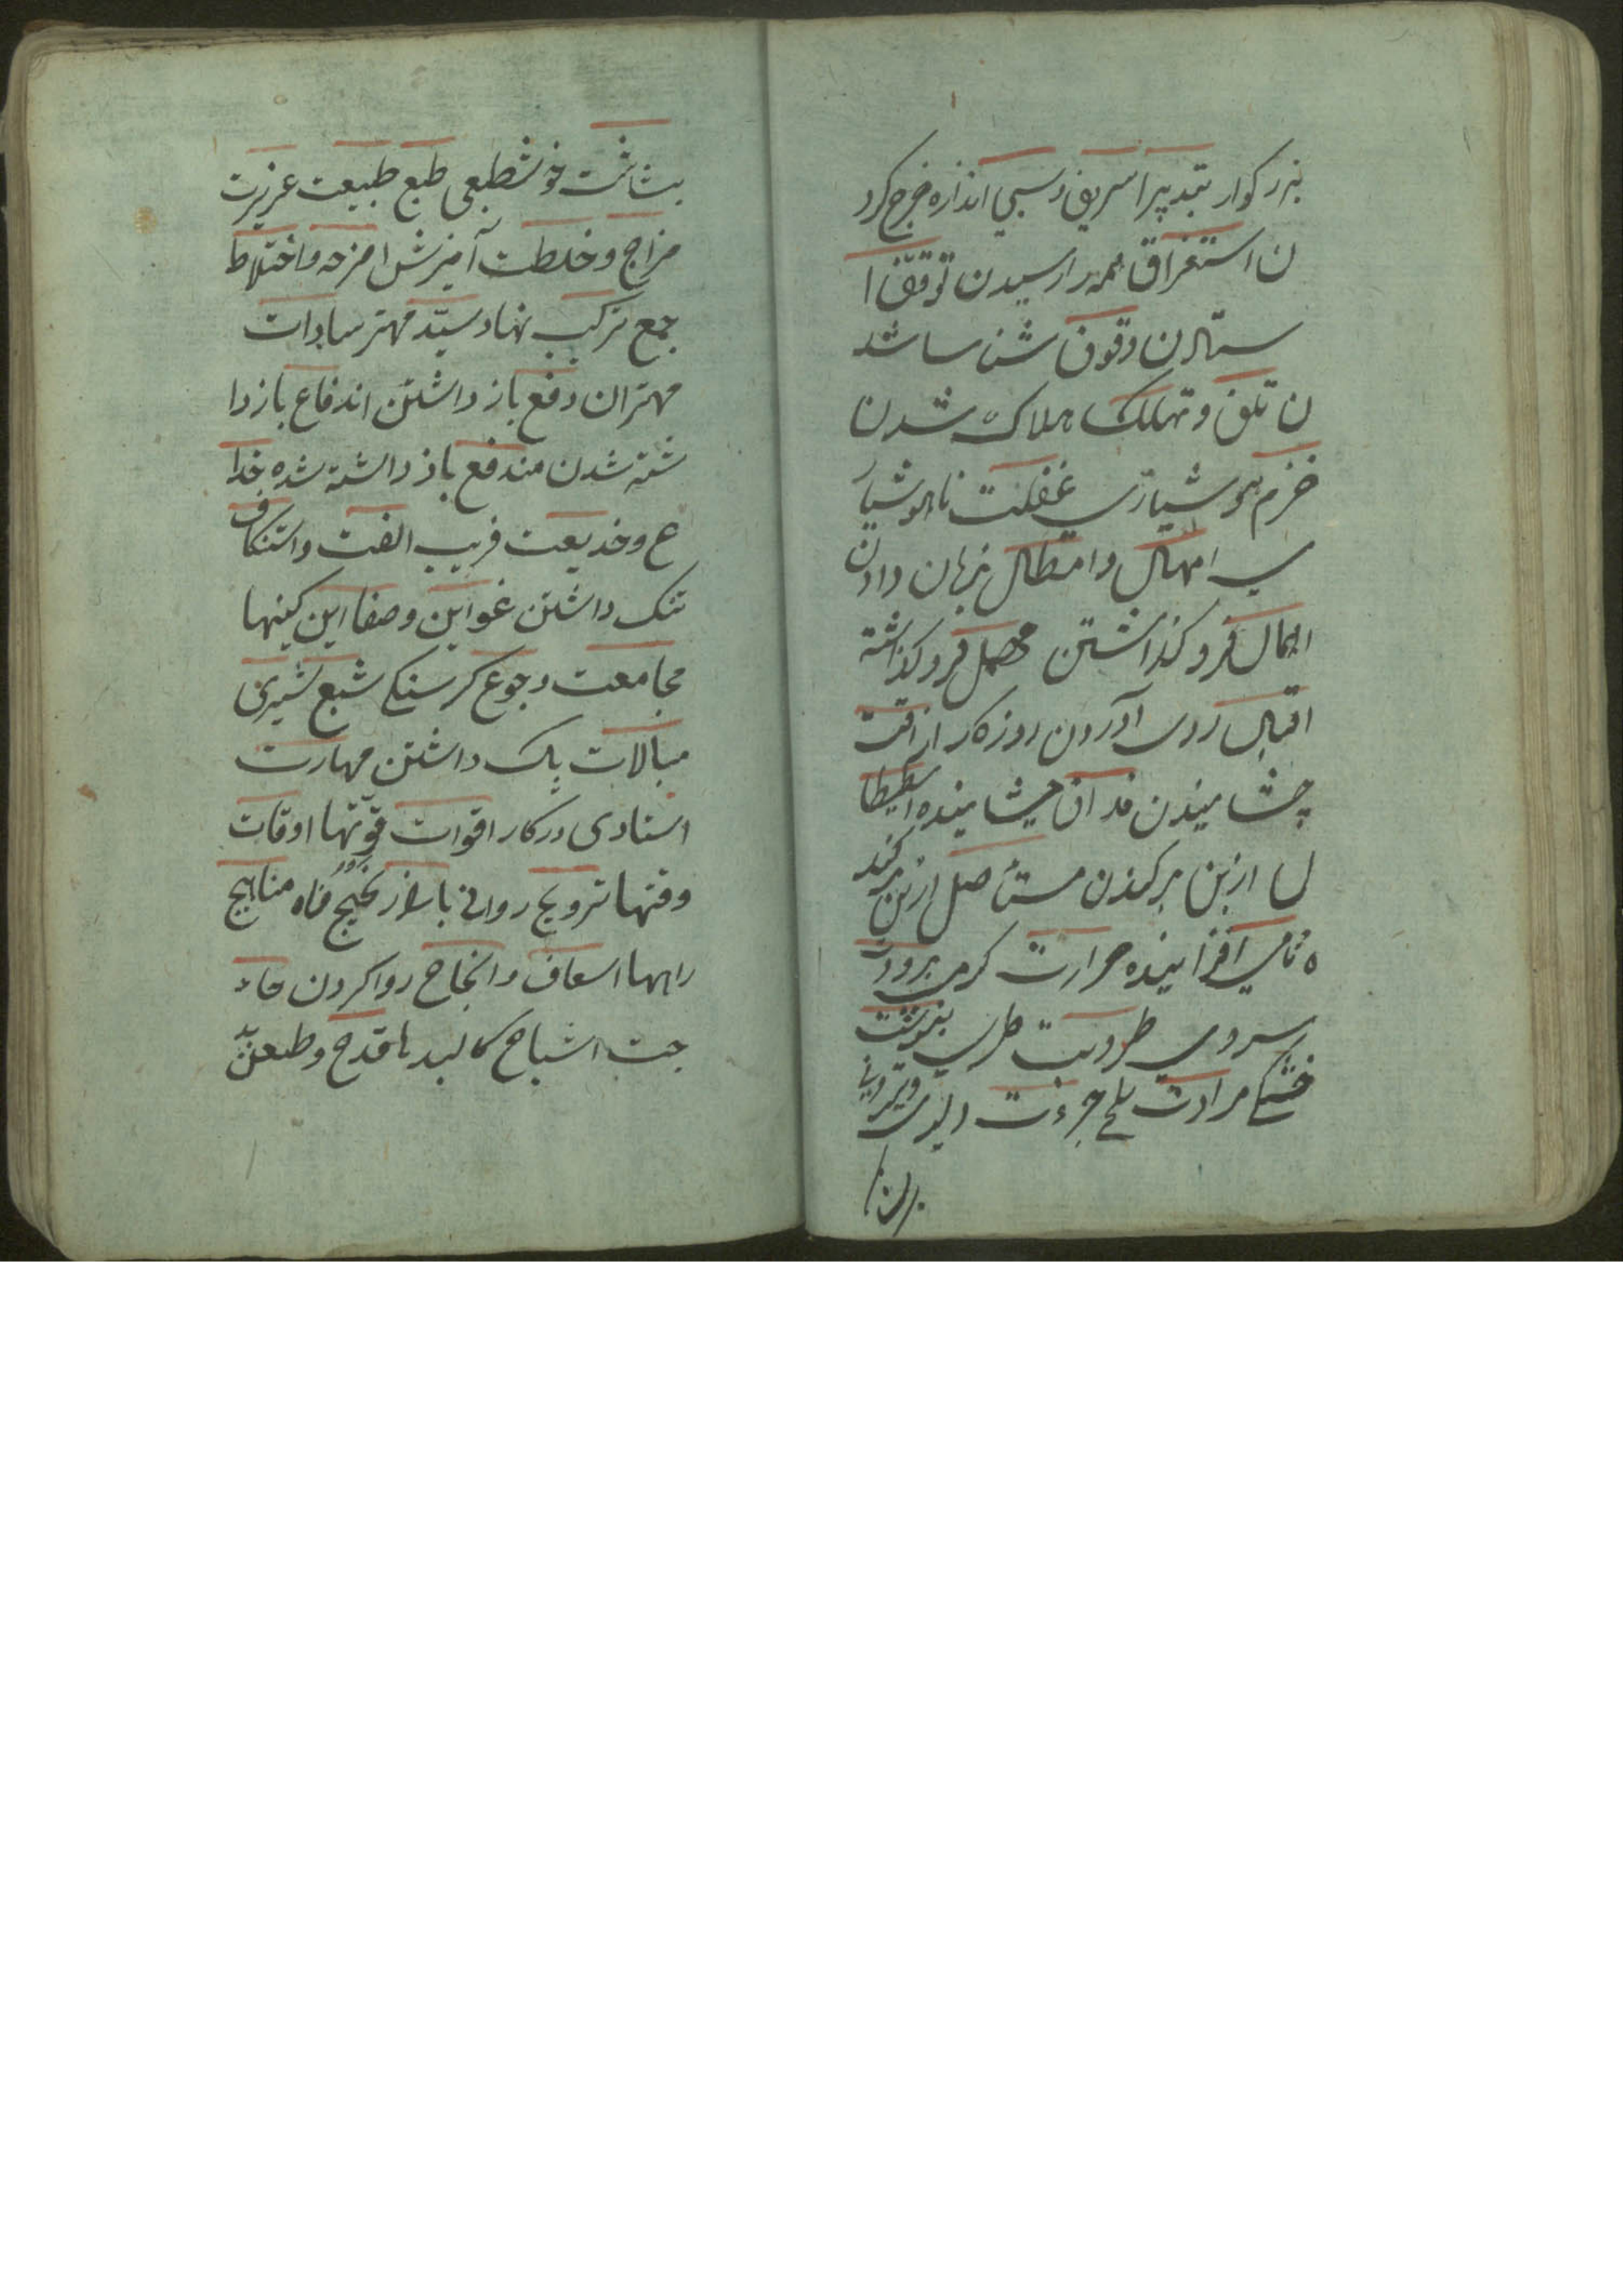 بزرکوار تبدیر اسریف وسبی اندازه خرج کرد
ن استغراق همه را رسیدن توقف ا
ستادن وقوف شناسا شد
ن تلف وتهلک هلاک شدن
خرم هوشیاری غفلت ناهوشیار
ی امهال وامطال زمان دادن
اهمال فروکذاشتن مهمل فروکذاشته
اقبال روی آوردن روزکار اذاقت
چشانیدن مذاق چشاینده استیصا
ل ازبن برکندن مستاصل ازبن برکند
ه نامی افزاینده حرارت کرمی برودت
سردی طروبت طری یبوست
خشکی مرارت تلخ جرءت دلیری
بشاشت خوشطبعی طبع طبیعت عریزت
مزاج وخلطت آمیزش امزجه واختلاط
جمع ترکیب نهاد سیّد مهتر سادات
مهتران دفع باز داشتن اندفاع بازدا
شته شدن مندفع باز داشته شده خدا
ع وخدیعت فریب الفت واستنکاف
ننک داشتن غواین وصفاین کینها
مجامعت وجوع کرسنکی شبع شیری
مبالات باک داشتن مهارت
استادی درکار اقوات قوّتها اوقات
وقتها ترویج روانی بازار مناهیج
راهها اسعاف وانجاح روا کردن حا
جت اشباح کالبدها قدح وطعن